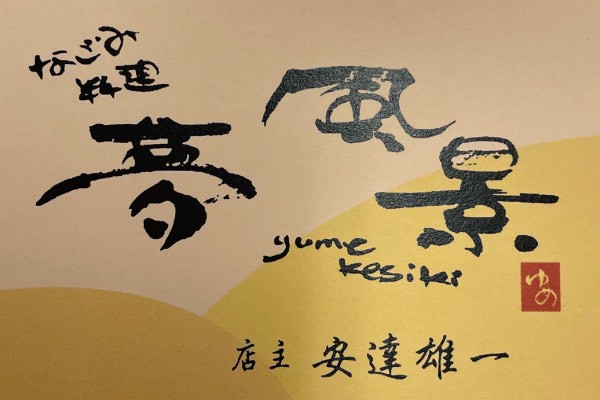 なごみ
料理
夢
風
景
yume
kesiki
ゆめ
店主 安達雄一